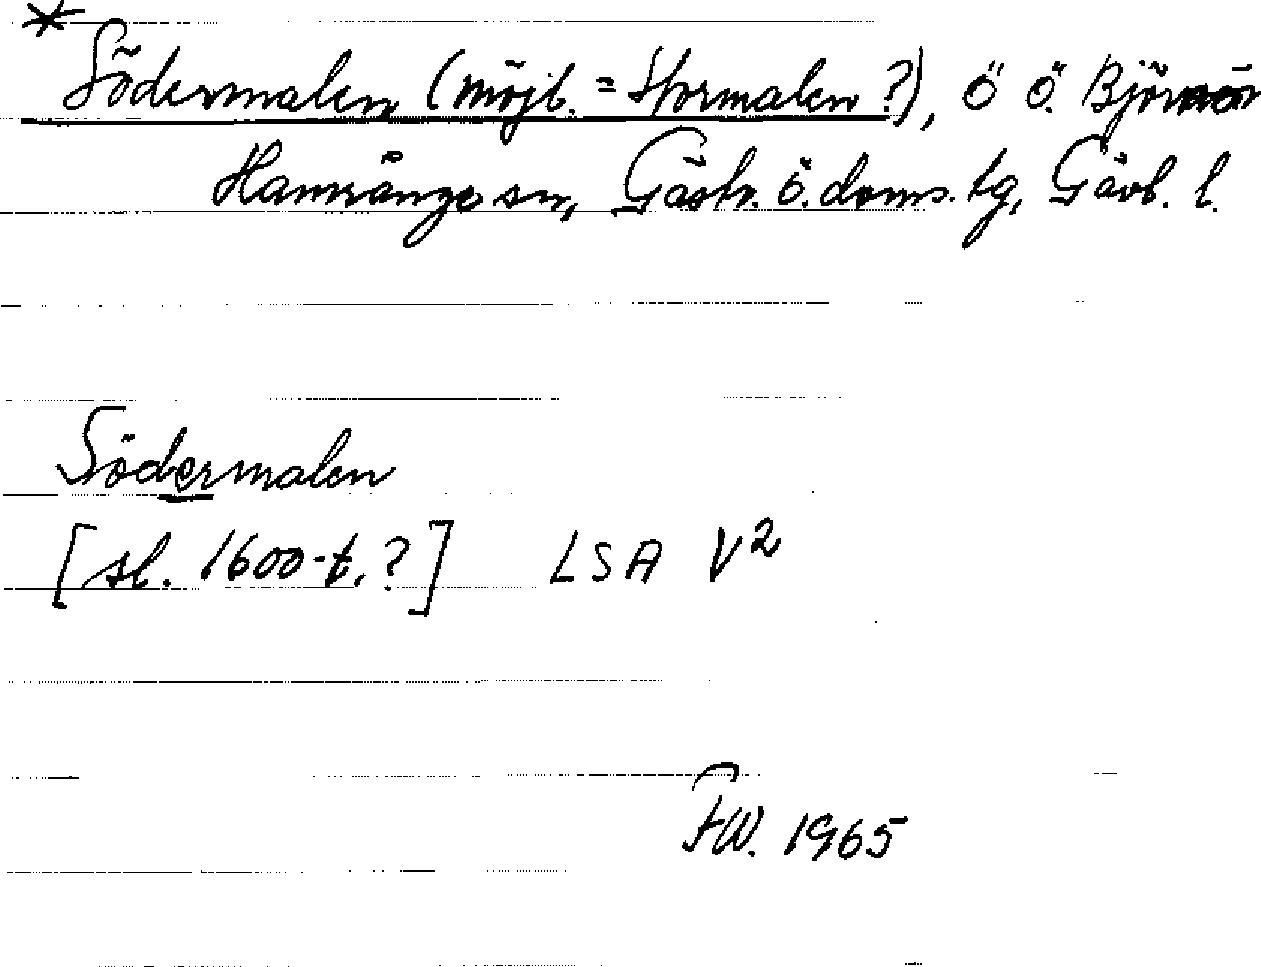 *
Södermalen (möjl. = Stormalen?), ö Ö. Björnön
Hamrånge sn, Gästr. ö. doms. tg, Gävl. l.
Södermalen
[sl. 1600-t.?] LSA V²
FW. 1965